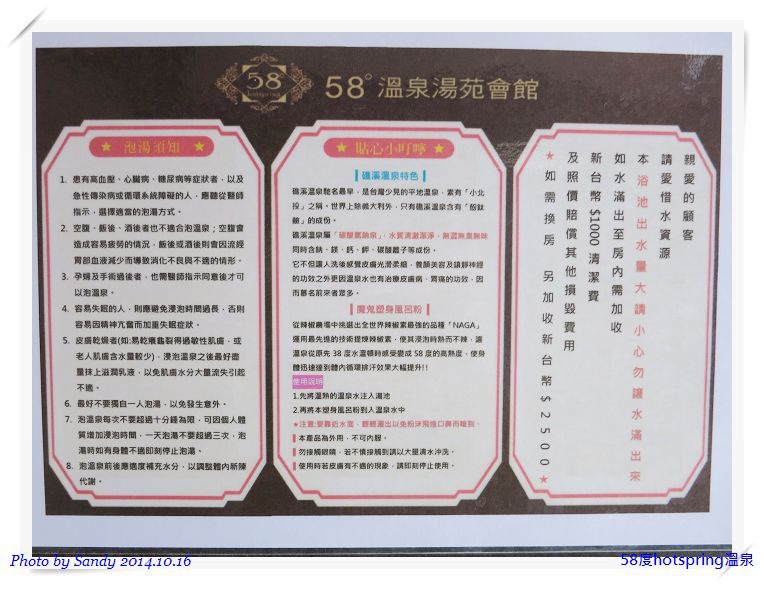 58°
hotspring
58°溫泉湯苑會館
★ 泡湯須知 ★
1. 患有高血壓、心臟病、糖尿病等症狀者，以及
急性傳染病或循環系統障礙的人，應聽從醫師
指示，選擇適當的泡湯方式。
2. 空腹、飯後、酒後者也不適合泡溫泉；空腹會
造成容易疲勞的情況，飯後或酒後則會因流經
胃部血液減少而導致消化不良與不適的情形。
3. 孕婦及手術過後者，也需醫師指示同意後才可
以泡溫泉。
4. 容易失眠的人，則應避免浸泡時間過長，否則
容易因精神亢奮而加重失眠症狀。
5. 皮膚乾燥者(如:易乾癢龜裂得過敏性肌膚，或
老人肌膚含水量較少)，浸泡溫泉之後最好盡
量抹上滋潤乳液，以免肌膚水分大量流失引起
不適。
6. 最好不要獨自一人泡湯，以免發生意外。
7. 泡溫泉每次不要超過十分鐘為限，可因個人體
質增加浸泡時間，一天泡湯不要超過三次，泡
湯時如有身體不適即刻停止泡湯。
8. 泡溫泉前後應適度補充水分，以調整體內新陳
代謝。
★ 貼心小叮嚀 ★
礁溪溫泉特色
礁溪溫泉馳名最早，是台灣少見的平地溫泉，素有「小北
投」之稱。世界上除義大利外，只有礁溪溫泉含有「酚酞
顱」的成份。
礁溪溫泉屬「碳酸氫鈉泉」，水質清澈潔淨，無混無臭無味
同時含鈉、鎂、鈣、鉀、碳酸離子等成份。
它不但讓人洗後感覺皮膚光滑柔細，養顏美容及鎮靜神經
的功效之外更因溫泉水也有治療皮膚病、胃痛的功效，因
而慕名前來者眾多。
魔鬼塑身風呂粉
從辣椒農場中挑選出全世界辣椒素最強的品種「NAGA」
運用最先進的技術提煉辣椒素，使其浸泡時熱而不辣，讓
溫泉從原先 38 度水溫頓時感受變成 58 度的高熱度，使身
體迅速達到體內循環排汗效果大幅提升!!
使用說明
1.先將溫熱的溫泉水注入湯池
2.再將本塑身風呂粉到入溫泉水中
★注意:要靠近水面，輕輕灑出以免粉沫飛進口鼻而嗆到。
本產品為外用，不可內服。
勿接觸眼睛，若不慎接觸到請以大量清水沖洗。
使用時若皮膚有不適的現象，請即刻停止使用。
親愛的顧客
請愛惜水資源
本浴池出水量大請小心勿讓水滿出來
如水滿出至房內需加收
新台幣 $1000 清潔費
及照價賠償其他損毀費用
★如需換房 另加收新台幣$2500★
Photo by Sandy 2014.10.16
58度hotspring溫泉